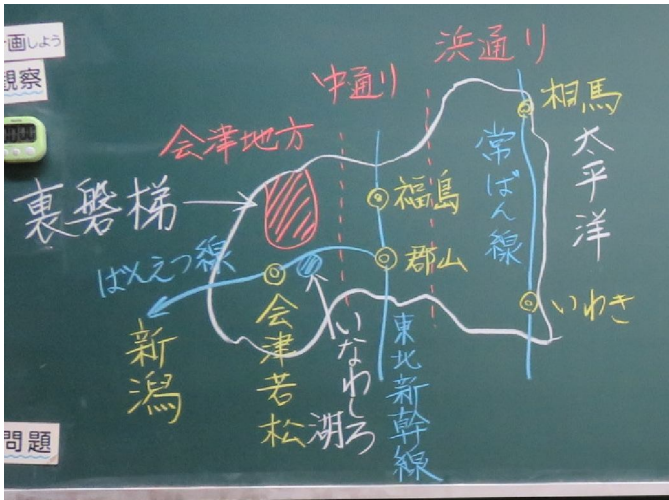 画しよう
観察
問題
浜通り
中通り
会津地方
裏磐梯
相馬
太平洋
常ばん線
福島
郡山
いわき
ばんえつ線
新潟
会津若松
いなわしろ
湖
東北新幹線